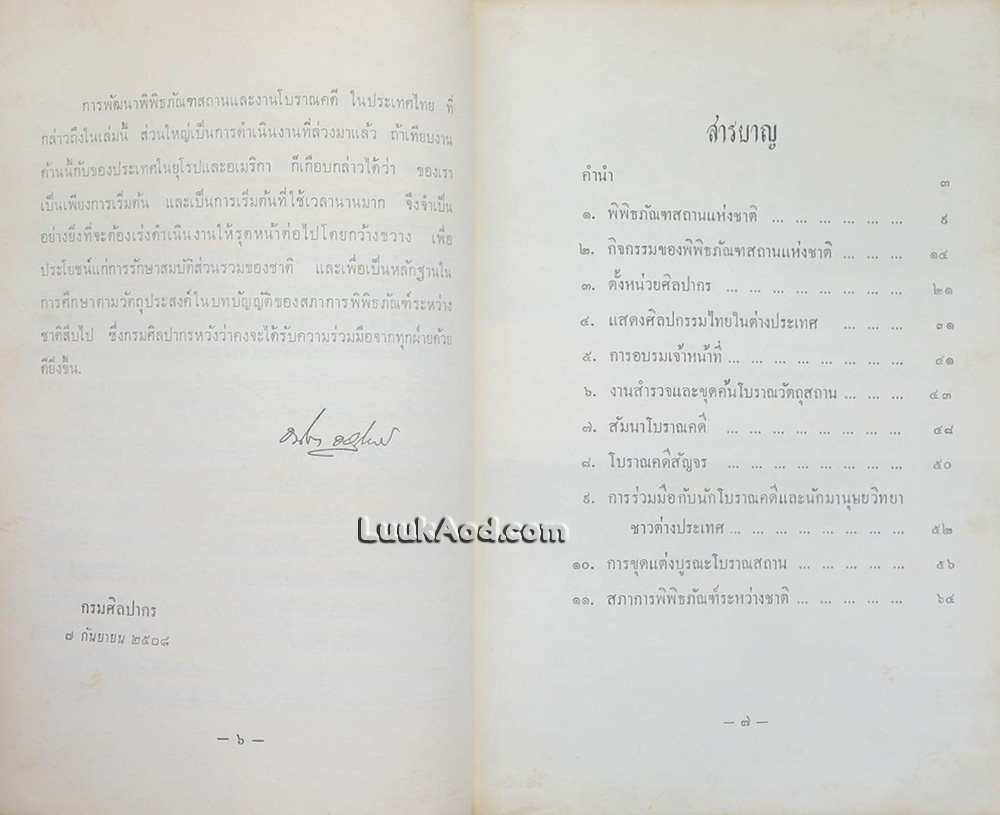 การพัฒนาพิพิธภัณฑสถานและงานโบราณคดี ในประเทศไทย ที่
กล่าวถึงในเล่มนี้ ส่วนใหญ่เป็นการดำเนินงานที่ล่วงมาแล้ว ถ้าเทียบงาน
ด้านนี้กับของประเทศในยุโรปและอเมริกา ก็เกือบกล่าวได้ว่า ของเรา
เป็นเพียงการเริ่มต้น และเป็นการเริ่มต้นที่ใช้เวลานานมาก จึงจำเป็น
อย่างยิ่งที่จะต้องเร่งดำเนินงานให้รุดหน้าต่อไปโดยกว้างขวาง เพื่อ
ประโยชน์แก่การรักษาสมบัติส่วนรวมของชาติ และเพื่อเป็นหลักฐานใน
การศึกษาตามวัตถุประสงค์ในบทบัญญัติของสภาการพิพิธภัณฑ์ระหว่าง
ชาติสืบไป ซึ่งกรมศิลปากรหวังว่าคงจะได้รับความร่วมมือจากทุกฝ่ายด้วย
ดียิ่งขึ้น.
กรมศิลปากร
๗ กันยายน ๒๕๐๘
— ๖ —
สารบาญ
คำนำ ๓
๑. พิพิธภัณฑสถานแห่งชาติ ... ... ... ... ... ... ๙
๒. กิจกรรมของพิพิธภัณฑสถานแห่งชาติ ... ... ... ๑๔
๓. ตั้งหน่วยศิลปากร ... ... ... ... ... ... ... ... ๒๑
๔. แสดงศิลปกรรมไทยในต่างประเทศ ... ... ... ๓๑
๕. การอบรมเจ้าหน้าที่ ... ... ... ... ... ... ... ... ๔๑
๖. งานสำรวจและขุดค้นโบราณวัตถุสถาน ... ... ... ๔๓
๗. สัมนาโบราณคดี ... ... ... ... ... ... ... ... ๔๘
๘. โบราณคดีสัญจร ... ... ... ... ... ... ... ... ๕๐
๙. การร่วมมือกับนักโบราณคดีและนักมานุษยวิทยา
ชาวต่างประเทศ ... ... ... ... ... ... ... ... ๕๒
๑๐. การขุดแต่งบูรณะโบราณสถาน ... ... ... ... ... ๕๖
๑๑. สภาการพิพิธภัณฑ์ระหว่างชาติ ... ... ... ... ... ๖๔
— ๗ —
LuukAod.com